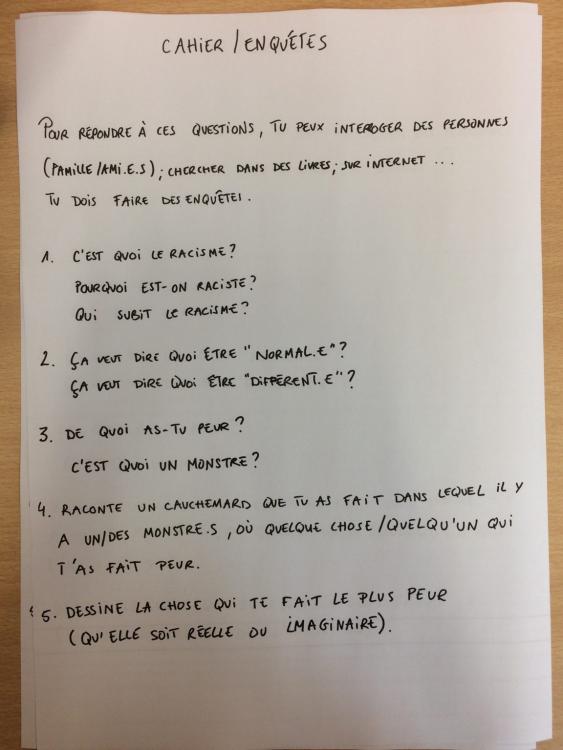 CAHIER / ENQUÊTES
POUR RÉPONDRE À CES QUESTIONS, TU PEUX INTEROGER DES PERSONNES
(FAMILLE / AMI.E.S) ; CHERCHER DANS DES LIVRES ; SUR INTERNET ...
TU DOIS FAIRE DES ENQUÊTES.
1. C'EST QUOI LE RACISME ?
POURQUOI EST-ON RACISTE ?
QUI SUBIT LE RACISME ?
2. ÇA VEUT DIRE QUOI ÊTRE "NORMAL.E" ?
ÇA VEUT DIRE QUOI ÊTRE "DIFFÉRENT.E" ?
3. DE QUOI AS-TU PEUR ?
C'EST QUOI UN MONSTRE ?
4. RACONTE UN CAUCHEMARD QUE TU AS FAIT DANS LEQUEL IL Y
A UN/DES MONSTRE.S, OÙ QUELQUE CHOSE / QUELQU'UN QUI
T'AS FAIT PEUR.
5. DESSINE LA CHOSE QUI TE FAIT LE PLUS PEUR
(QU'ELLE SOIT RÉELLE OU IMAGINAIRE).